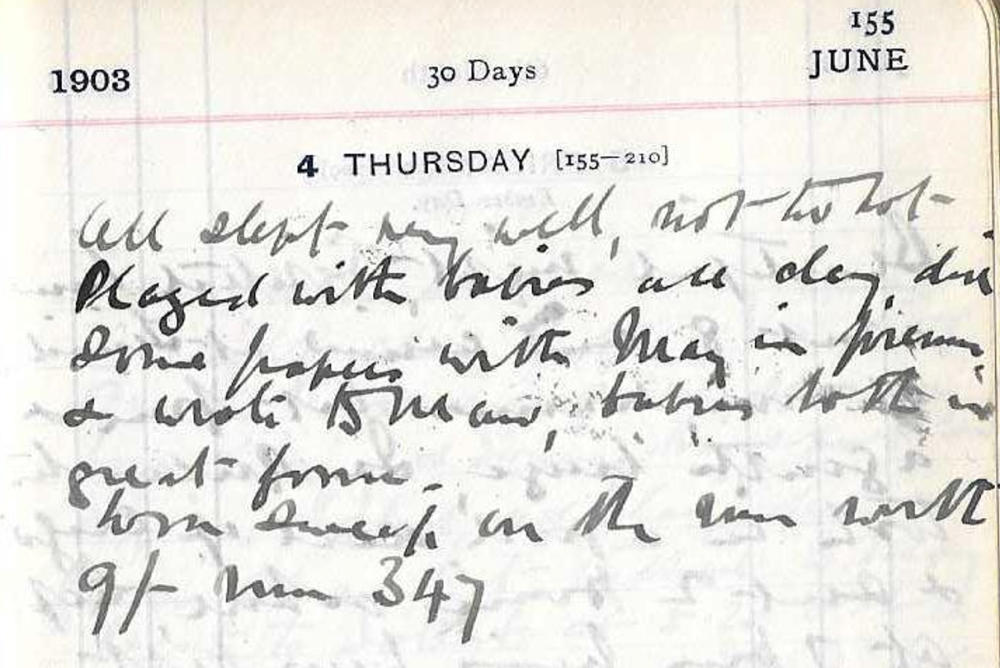 155
1903 30 Days JUNE
4 THURSDAY [155—210]
All slept very well, not too hot
Played with babies all day, did
some papers with May in forenn
& wrote babies both in
great form.
Won sweep on the run worth
9/- run 347